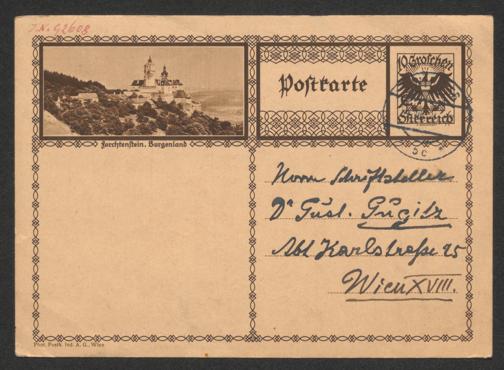 I.N. 92608
Postkarte
10 Groschen
Österreich
Forchtenstein, Burgenland
Herrn Schriftsteller
Dr Gust. Gugitz
Abt Karlstraße 25
Wien XVIII.
Phot. Postk. Ind. A. G., Wien